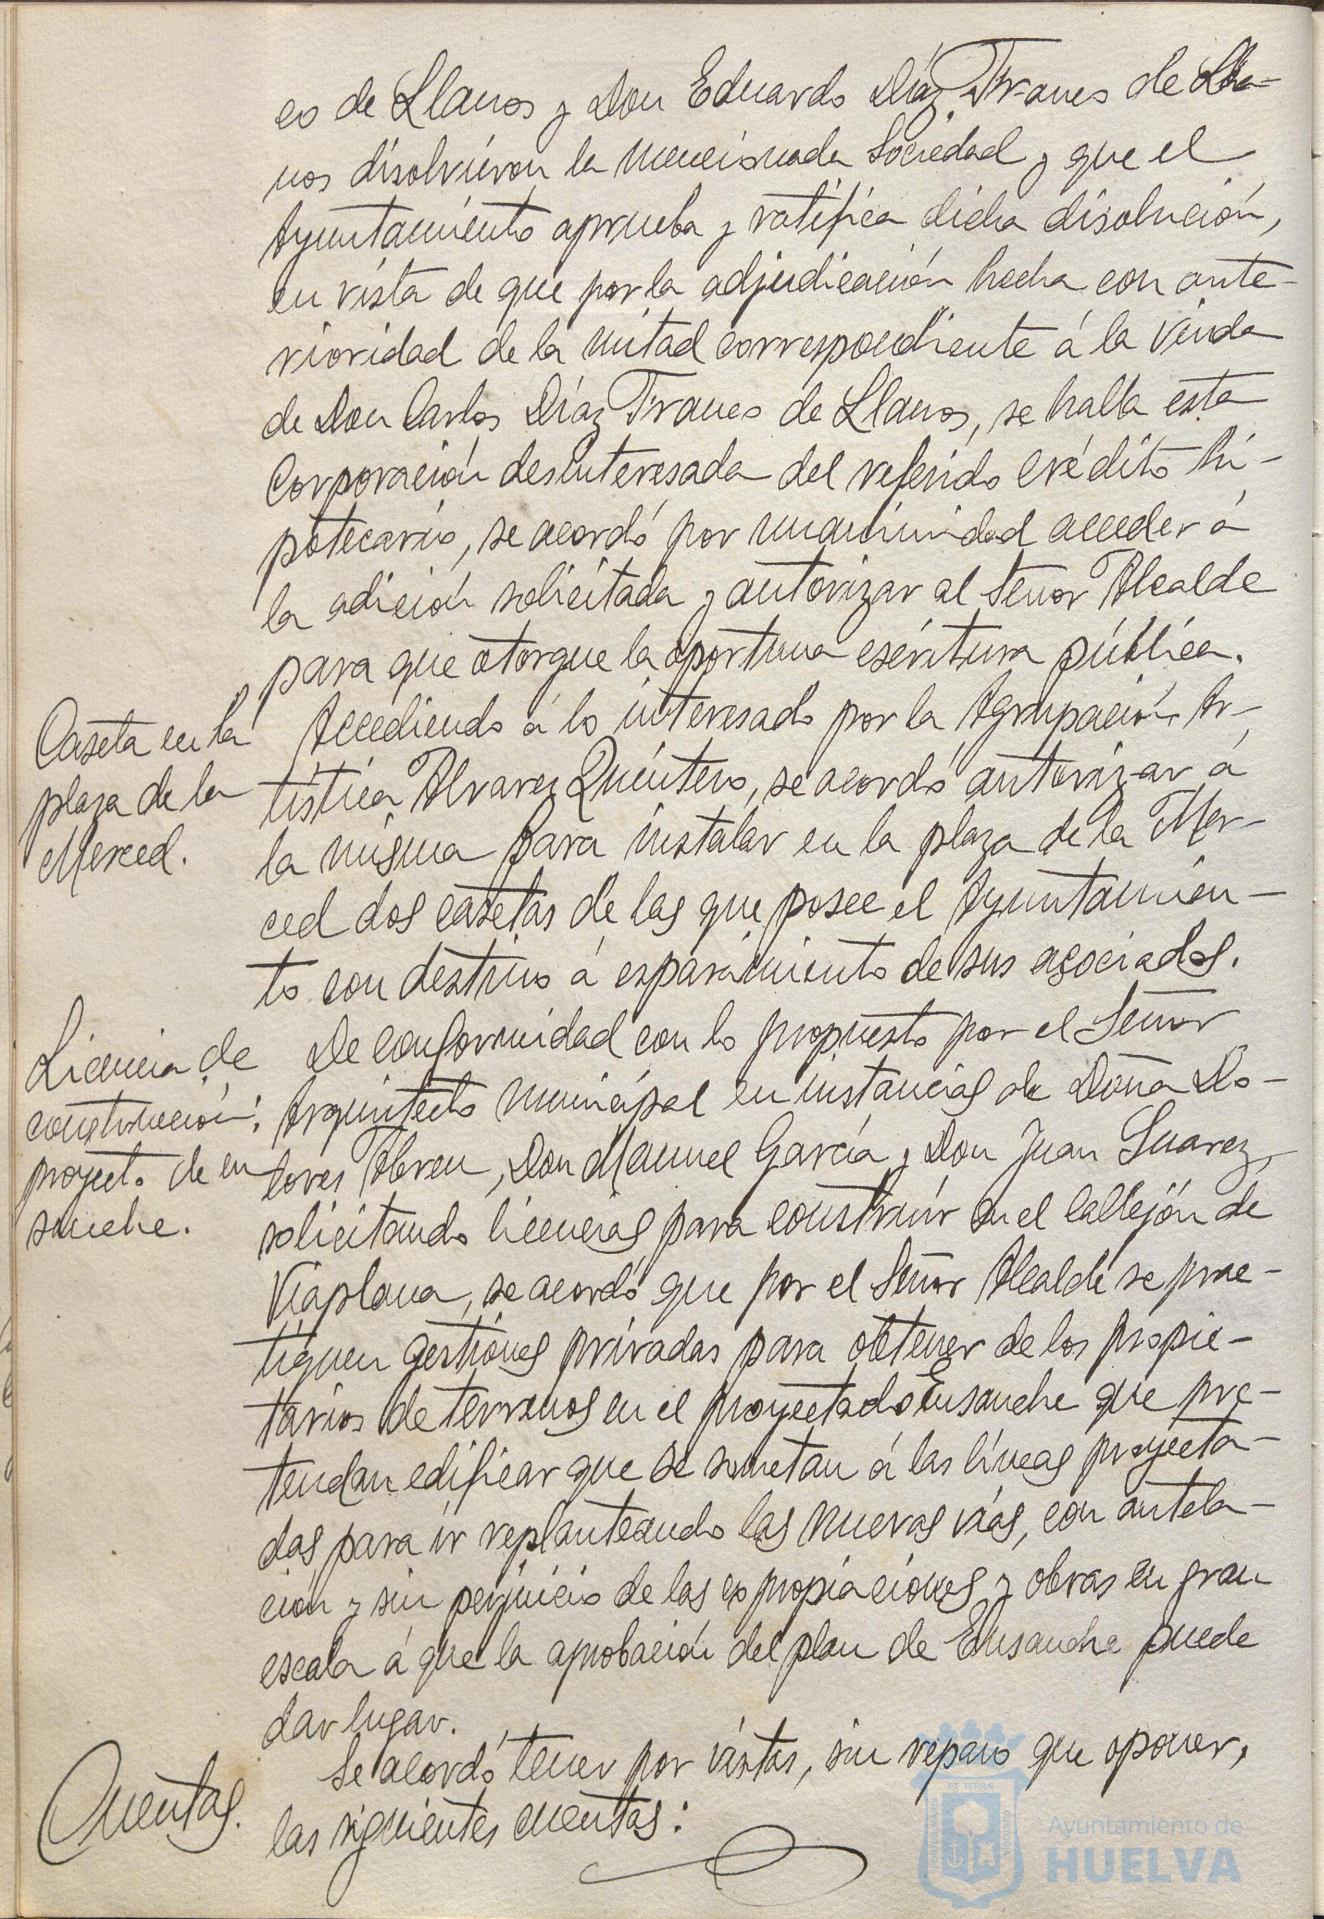 co de Llanos y Don Eduardo Díaz Franco de Lla-
nos disolvieron la mencionada Sociedad y que el
Ayuntamiento aprueba y ratifica dicha disolución,
en vista de que por la adjudicación hecha con ante-
rioridad de la mitad correspondiente á la Viuda
de Don Carlos Díaz Franco de Llanos, se halla esta
Corporación desinteresada del referido crédito hi-
potecario, se acordó por unanimidad acceder á
la adición solicitada y autorizar al Señor Alcalde
para que otorgue la oportuna escritura pública.
Caseta en la
plaza de la
Merced.
Accediendo á lo interesado por la Agrupación Ar-
tística Alvarez Quintero, se acordó autorizar á
la misma para instalar en la plaza de la Mer-
ced dos casetas de las que posee el Ayuntamien-
to con destino á esparcimiento de sus asociados.
Licencia de
construcción:
proyecto de en
sanche.
De conformidad con lo propuesto por el Señor
Arquitecto Municipal en instancias de Doña Do-
lores Abreu, Don Manuel García y Don Juan Suarez,
solicitando licencias para construir en el callejón de
Viaplana, se acordó que por el Señor Alcalde se prac-
tiquen gestiones privadas para obtener de los propie-
tarios de terrenos en el proyectado Ensanche que pre-
tendan edificar que se sometan á las líneas proyecta-
das para ir replanteando las nuevas vías, con antela-
cion y sin perjuicio de las expropiaciones y obras en gran
escala á que la aprobación del plan de Ensanche puede
dar lugar.
Cuentas.
Se acordó tener por vistas, sin reparo que oponer,
las siguientes cuentas:
Ayuntamiento de
HUELVA